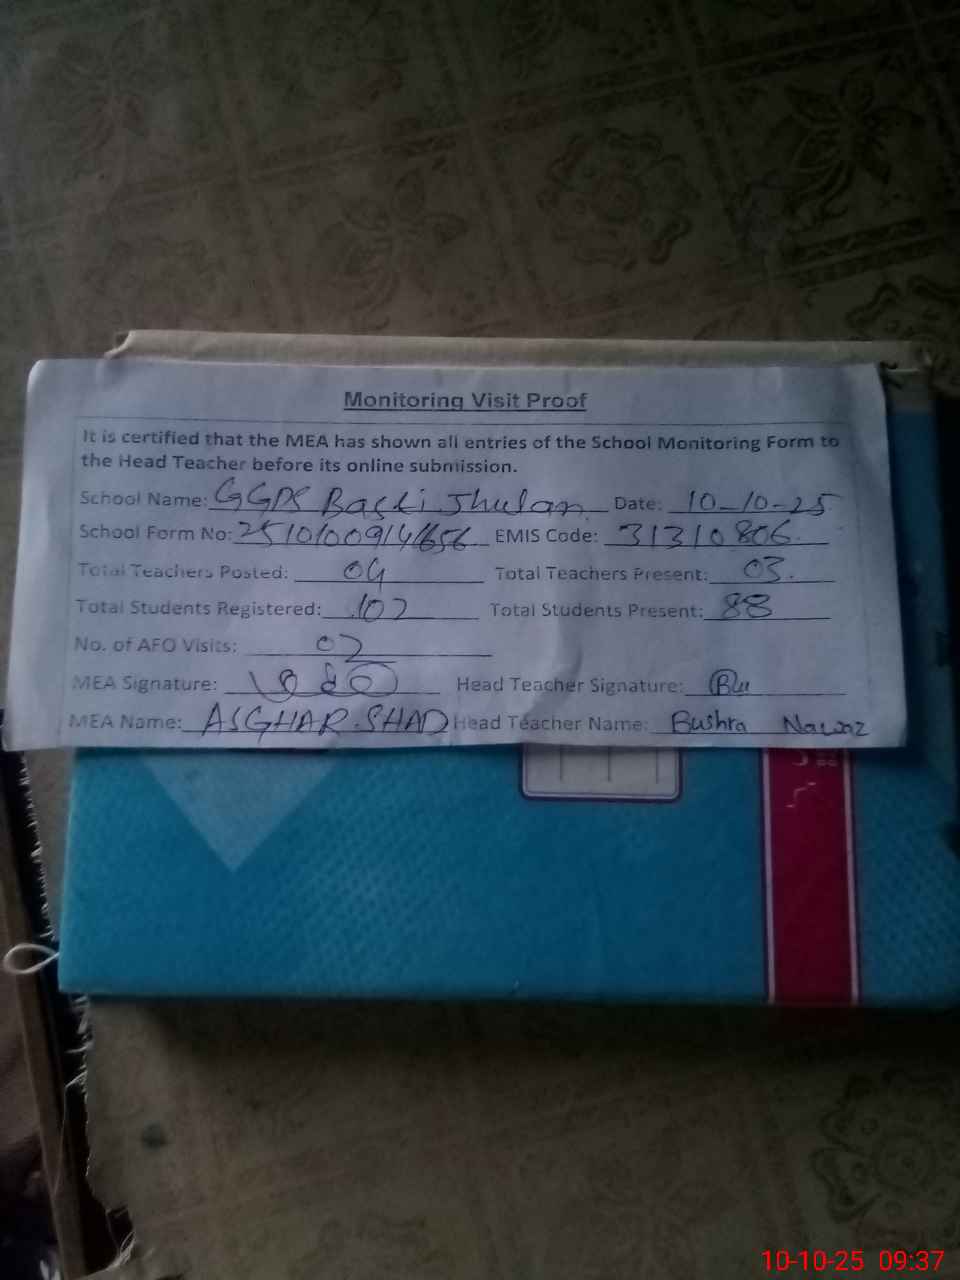 Monitoring Visit Proof
It is certified that the MEA has shown all entries of the School Monitoring Form to
the Head Teacher before its online submission.
School Name: GGPS Basti Jhulan Date: 10-10-25
School Form No: EMIS Code: 31310806
Total Teachers Posted: 04 Total Teachers Present: 03.
Total Students Registered: 102 Total Students Present: 88
No. of AEO Visits: 02
MEA Signature: Head Teacher Signature:
MEA Name: ASGHAR SHAD Head Teacher Name: Bushra Nawaz
10-10-25 09:37